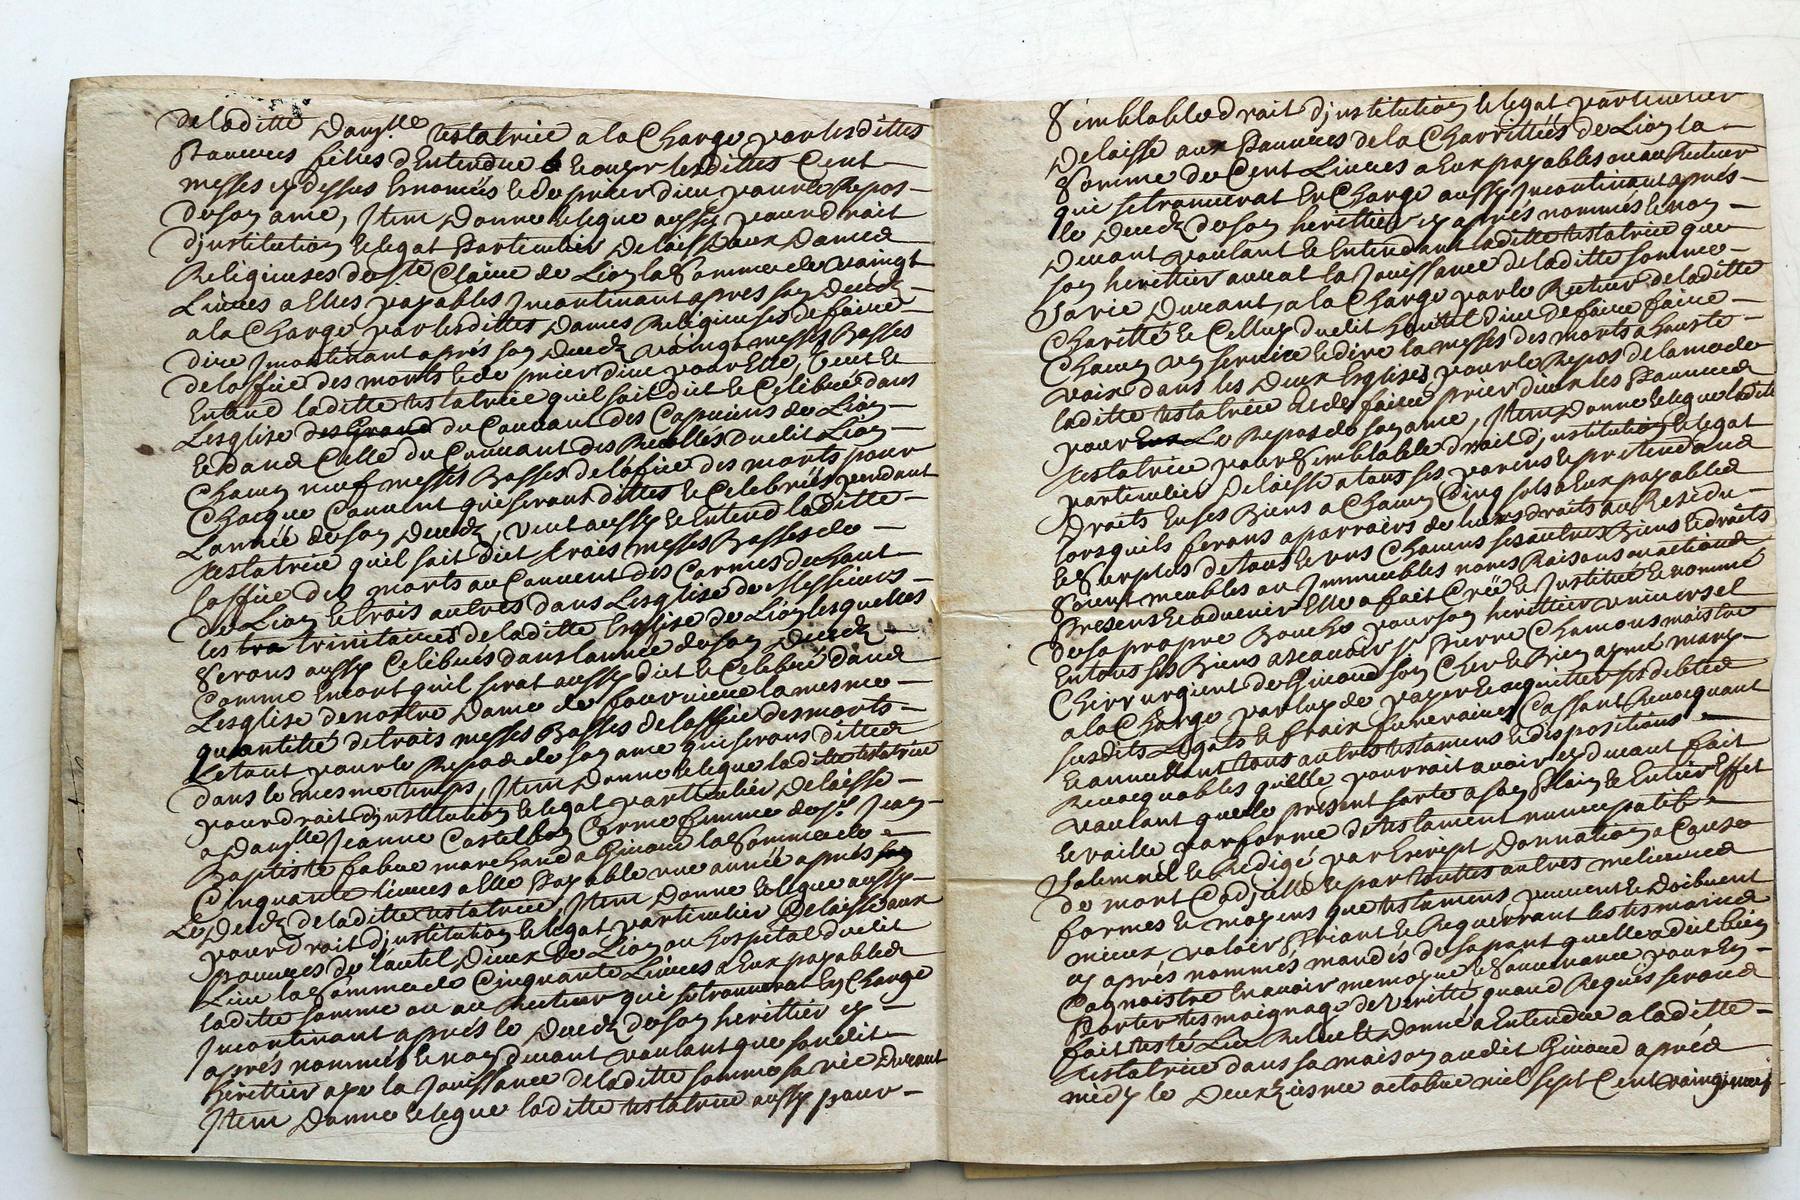 deladitte Dauzlle testatrice a la Charge par lesdittes
pauvres filles d'Entendre & le ouyr lesdittes Cent
messes cy dessus Enoncées et de prier dieu pour le Repos
de son ame, Item Donne et legue aussy pour droit
d'justitution et legat Particulier Delaisse aux Dames
Religieuses de Ste Claire de Lion la Somme de vaingt
Livres a Elles payables Jncontinant apres son Decedz
a la Charge par lesdittes Dames Religieuses de faire
dire Jncontinant aprés son Decedz vaingt messes Basses
de loffice des morts et de prier dieu pour Elle, Veut et
Entend laditte testatrice qu'il soit dit et Celebrée dans
Lesglise des Grand du Couvant des Capucins de Lion
et dans Celle du Couvant des Recollés dudit Lion
Chacun neuf messes Basses de loffice des morts pour
Chacque Couvent qui seront dittes et Celebrées pendant
Lannée de son Decedz, veut aussy et Entend laditte
testatrice quil soit diet trois messes Basses de
loffice des morts au Couvent des Carmes du haut
de Lion et trois autres dans Lesglise de Messieurs
les tra trinitaires de laditte Esglise de Lion lesquelles
Serons aussy Celibrés dans lannée de son Decedz
Comme Encort quil serat aussy diet et Celebré dans
Lesglise de nostre Dame de fourviere la mesme
quantitié de trois messes Basses de loffice des morts
Letout pour le Repos de son ame qui serons dittes
dans le mesme temps, Item Donne et legue laditte testatrice
pour droit d'justitution et legat particulier Delaisse
a Dauzlle Jeanne Castelbon Cerme femme de Sr. Jean
Baptiste fabue marchand a Givord la Somme de
Cinquante livres a Elle Payable une année aprés son
Le Decedz de laditte testatrice, Item Donne et legue aussy
pour droit d'justitution et legat particulier Delaisse aux
pauvres de l'autel Dieux de Lion ou hospital dudit
Lieu la Somme de Cinquante Livres a Eux payables
laditte somme ou au Recteur qui se trouverat En Charge
Jncontinant aprés le Decedz de son herittier cy
aprés nommés et non devant voulant que sondit
herittier aye la Jouissance de laditte somme sa vie Durant
Item Donne et legue laditte testatrice aussy pour
Semblable droit d'justitution et legat particulier
Delaisse aux Pauvres de la Charrittées de Lion la
Somme de Cent Livres a Eux payables ou au Recteur
qui se trouverat En Charge aussy Jncontinant aprés
le Decedz de son herittier cy aprés nommés et non
Devant voulant et Entendant laditte testatrice que
son herittier aurat la Jouissance de laditte somme
Savie Durant, a la Charge par le Recteur de laditte
Charitté et Celluy dudit hautel dieu de faire faire
Chacun un service et dire la messes des morts a hauste
voix dans les Deux Esglises pour le Repos de lame de
laditte testatrice et de faire prier dieux les Pauvres
pour Eux Le Repos de son ame, Item Donne et legue laditte
testatrice pour Semblable droit d'justitution et legat
particulier Delaisse a tous ses parens et prettendans
Droits En ses Biens a Chacun Cinq sols a Eux payables
lorsquils ferons aparroirs de leurs droits au Residu
et Surplus de tous et uns Chacuns ses autres Biens et droits
Soient meubles ou Jmmeubles noms Raisons ou actions
Presens et advenir Elle a fait Créé et Justitué et nommé
de sa propre Bouche pour son herittier universel
En tous ses Biens ascavoir Sr. Pierre Chamous maistre
Chirurgient de Givord son Cher et Bien aymé mary
a la Charge par luy de payer et acquitter ses debtes
susdits Legats et fraix funeraires Cassant Revocquant
et annullant tous autres testamens et dispositions
Revocquables quelle pourrait avoir cy devant fait
voulant que le present sorte a son Plain et Entier Effet
et vaille par forme de testament nuncupatif
Solemnel et Redigé par Escript Donnation a Cause
de mort Codicille et par toutes autres meilieures
formes et moyens que testamens peuvent et doibvent
mieux valoir Priant et Requerrant les tesmoins
cy aprés nommés mandés de sa part quelle a dit bien
Cognoistre En avoir memoyre et Souvenance pour En
Porter tesmoignage de veritté quand Requis serons
fait leste Leu Releu et Donné a Entendre a laditte
testatrice dans sa maison audit Givord aprés
midy le Deuxziesme octobre mil sept Cent vaingt neuf